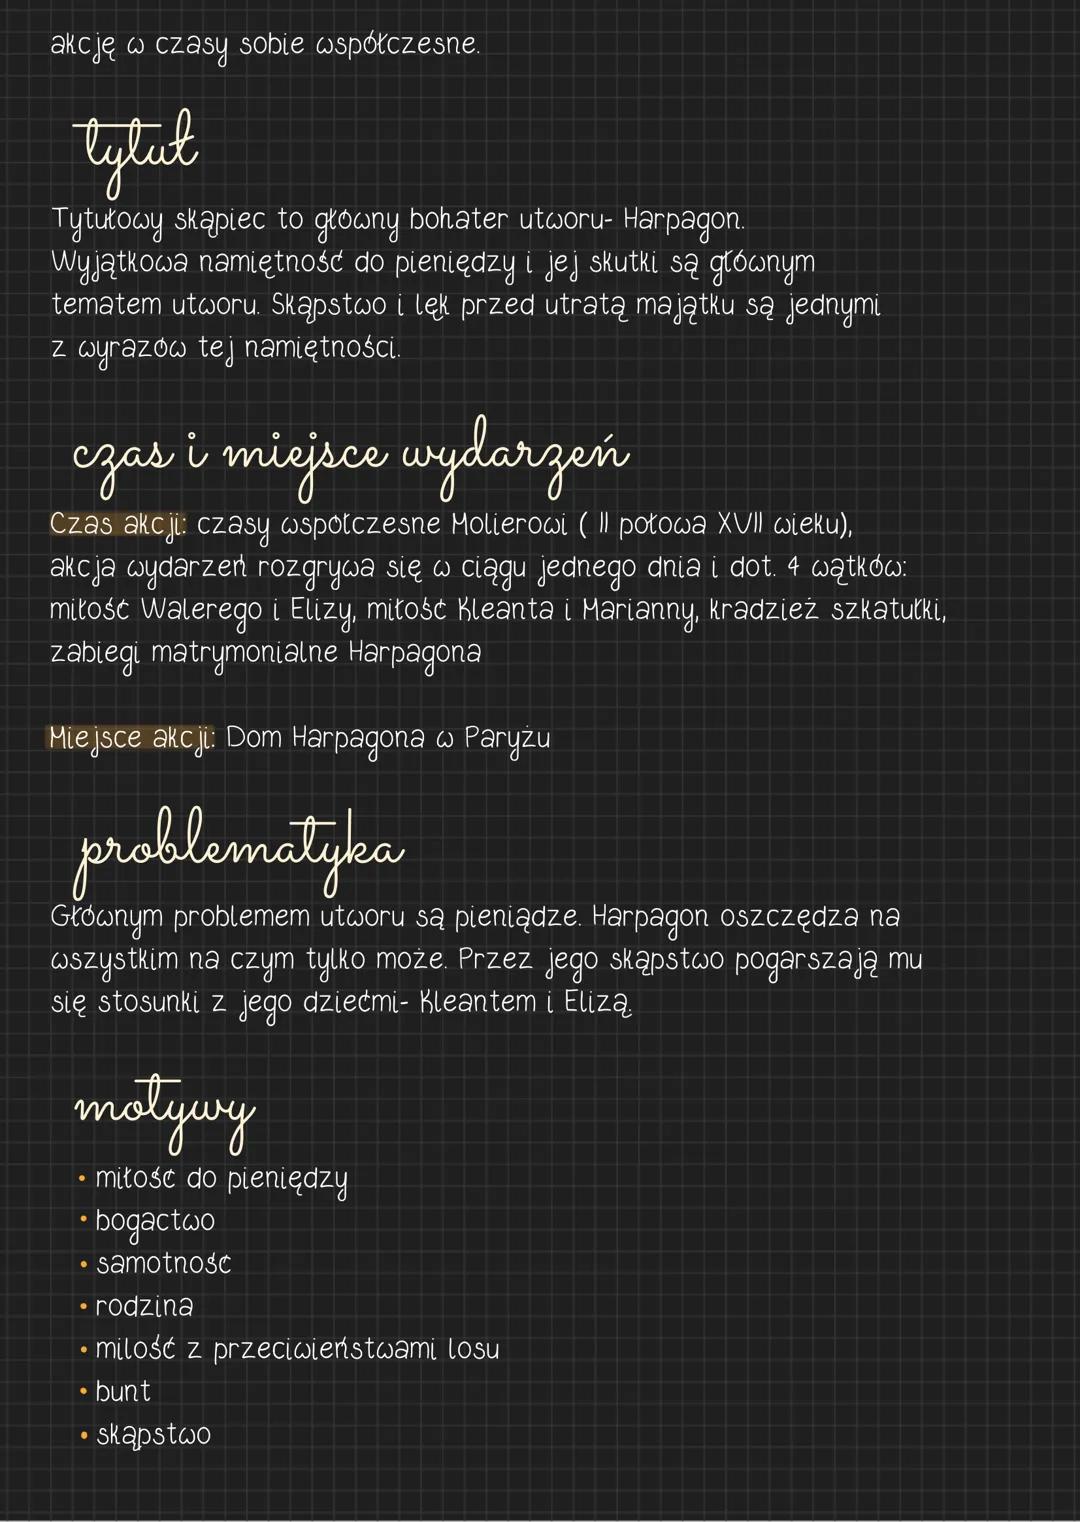 akcję w czasy sobie współczesne.
tytuł
Tytułowy skąpiec to główny bohater utworu- Harpagon.
Wyjątkowa namiętność do pieniędzy i jej skutki są głównym
tematem utworu. Skąpstwo i lęk przed utratą majątku są jednymi
z wyrazów tej namiętności.
czas i miejsce wydarzeń
Czas akcji: czasy współczesne Molierowi ( II połowa XVII wieku),
akcja wydarzeń rozgrywa się w ciągu jednego dnia i dot. 4 wątków:
miłość Walerego i Elizy, miłość Kleanta i Marianny, kradzież szkatułki,
zabiegi matrymonialne Harpagona
Miejsce akcji: Dom Harpagona w Paryżu
problematyka
Głównym problemem utworu są pieniądze. Harpagon oszczędza na
wszystkim na czym tylko może. Przez jego skąpstwo pogarszają mu
się stosunki z jego dziećmi- Kleantem i Elizą.
motywy
• miłość do pieniędzy
• bogactwo
• samotność
• rodzina
• milość z przeciwieństwami losu
• bunt
• skąpstwo